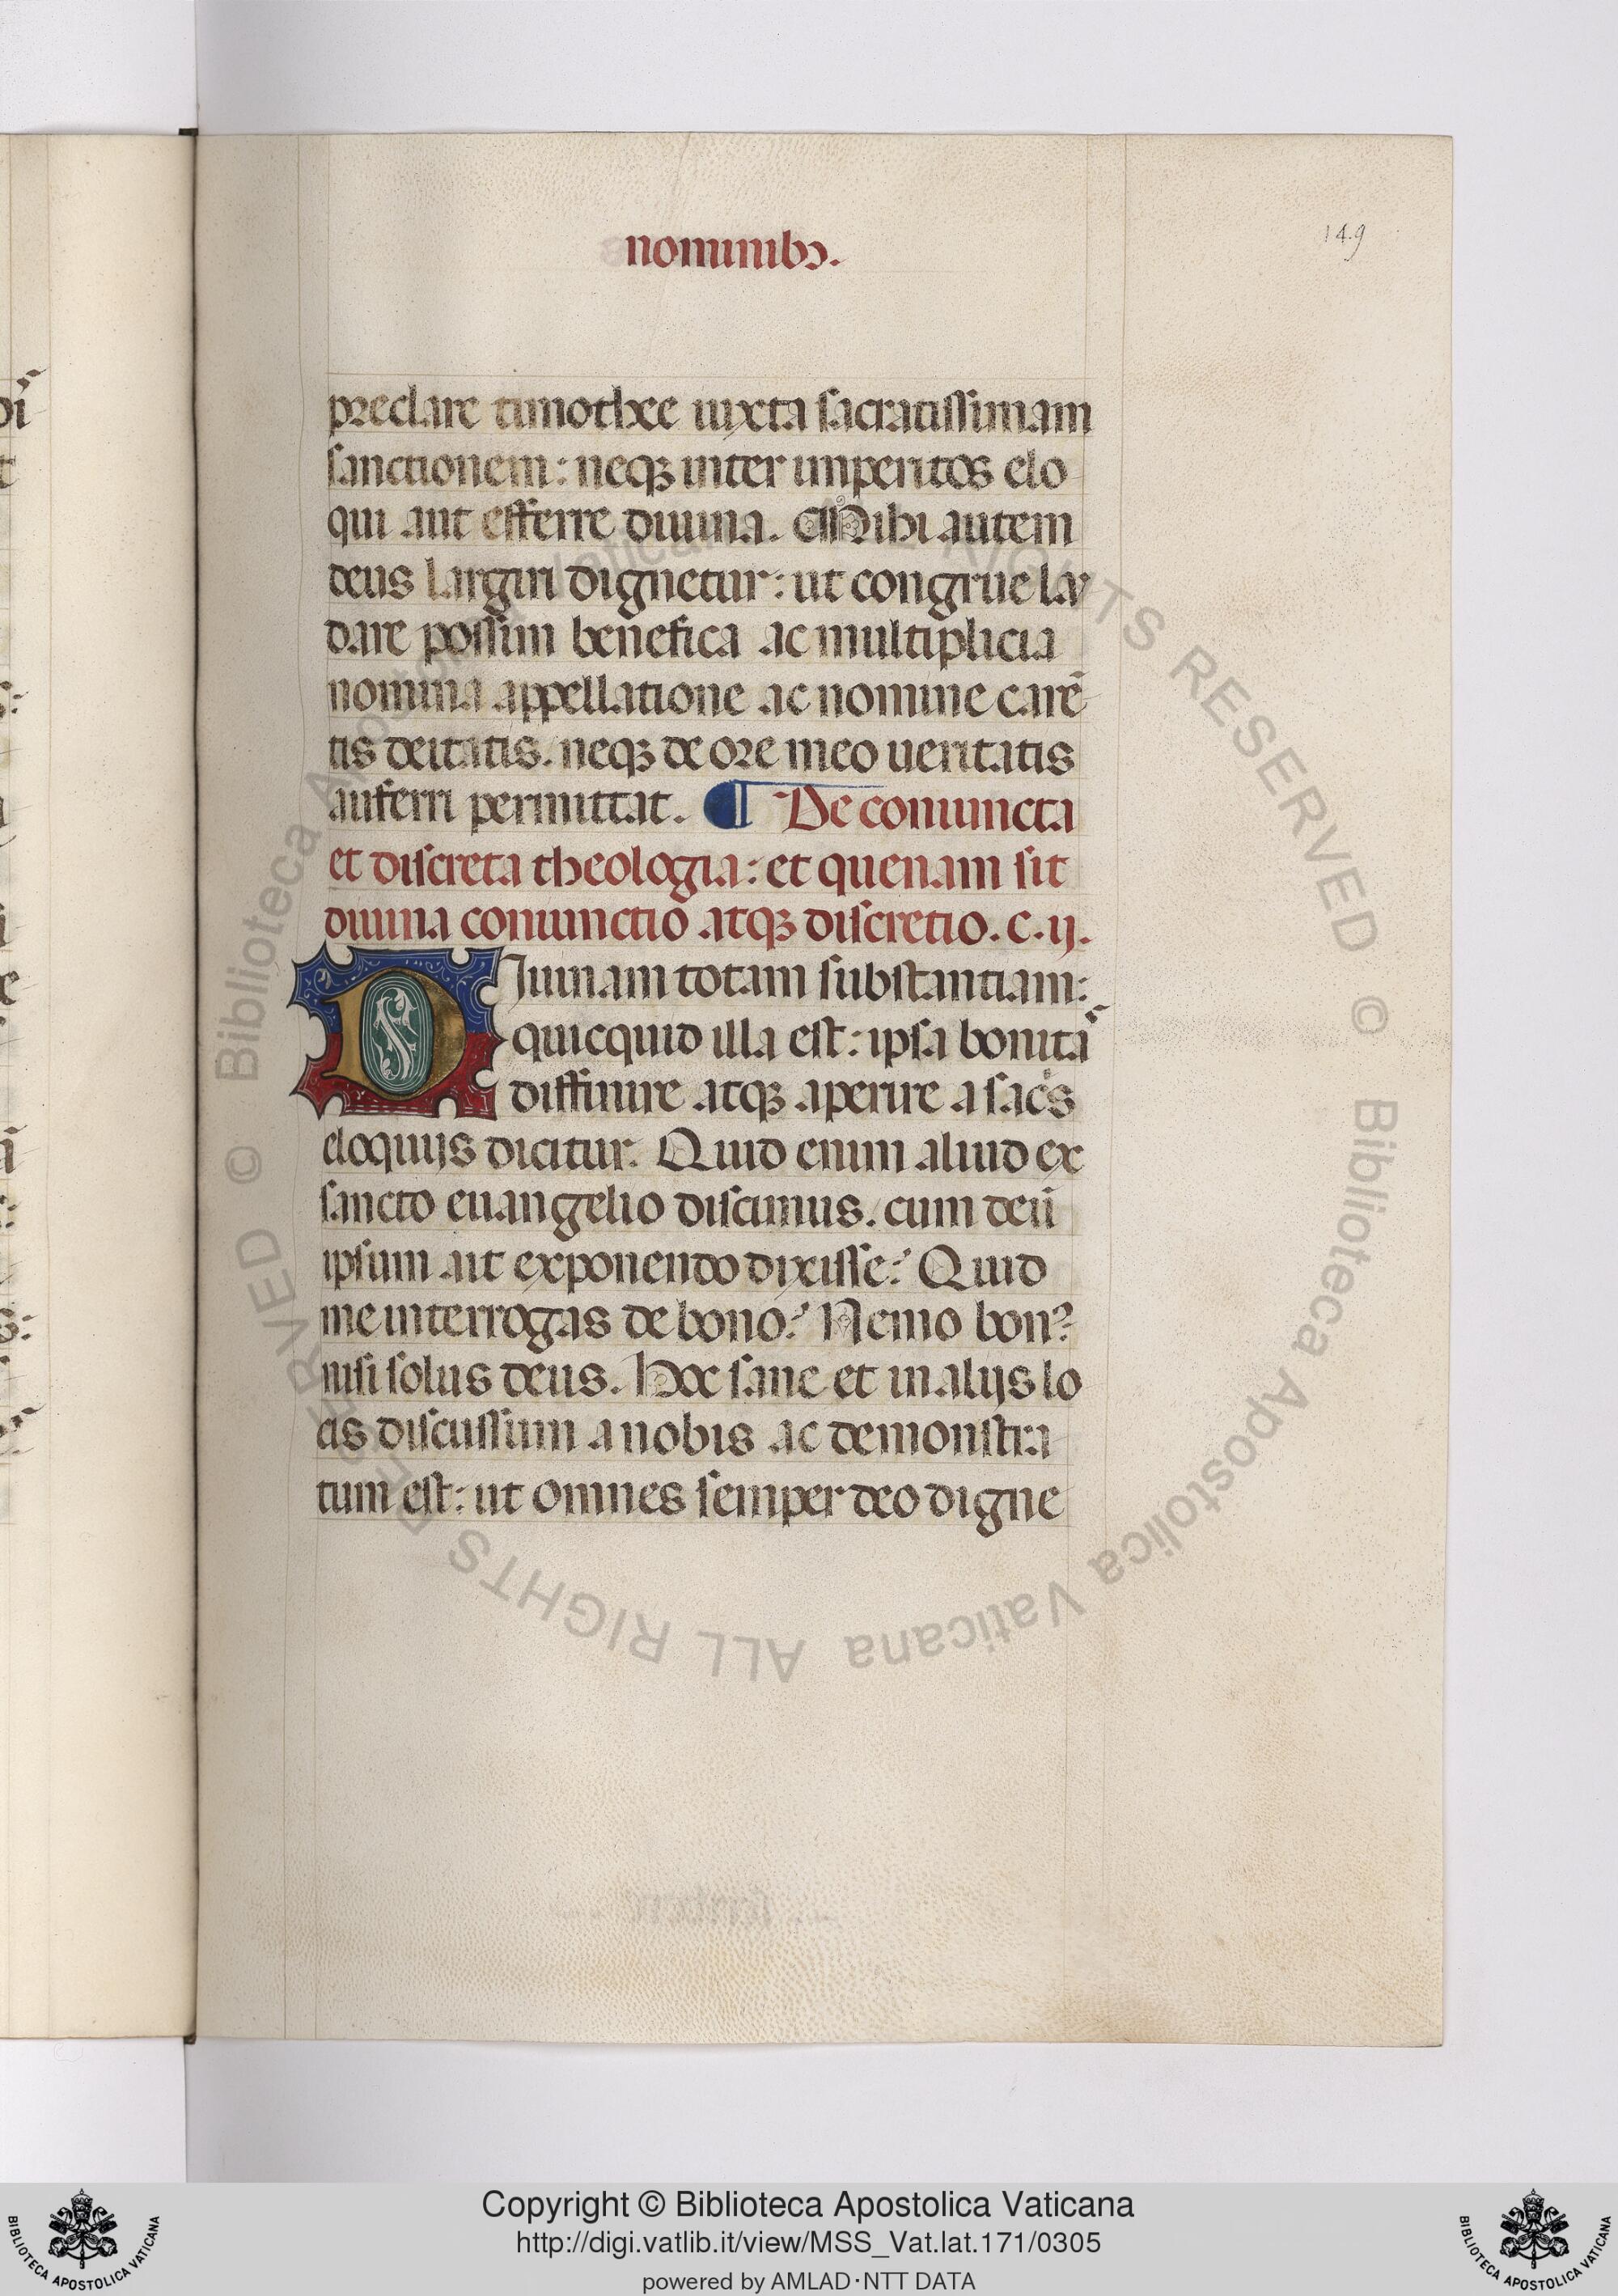 nominibꝰ.
149
preclare timothee iuxta sacratissimam
sanctionem: neqꝫ inter imperitos elo
qui aut efferre diuina. Mihi autem
deus largiri dignetur: ut congrue lau
dare possim benefica ac multiplicia
nomina appellatione ac nomine carē
tis deitatis. neqꝫ de ore meo ueritatis
auferri permittat. ¶ De coniuncta
et discreta theologia: et quenam sit
diuina coniunctio atqꝫ discretio. c. ij.
DIuinam totam substantiam:
quicquid illa est: ipsa bonitā
diffinire atqꝫ aperire a sacs
eloquijs dicitur. Quid enim aliud ex
sancto euangelio discimus. cum deū
ipsum ait exponendo dixisse? Quid
me interrogas de bono? Nemo bonꝰ
nisi solus deus. Hoc sane et in alijs lo
cis discussum a nobis ac demonstra
tum est: ut omnes semper deo digne
© Biblioteca Apostolica Vaticana ALL RIGHTS RESERVED
Copyright © Biblioteca Apostolica Vaticana
http://digi.vatlib.it/view/MSS_Vat.lat.171/0305
powered by AMLAD·NTT DATA
BIBLIOTECA APOSTOLICA VATICANA
BIBLIOTECA APOSTOLICA VATICANA